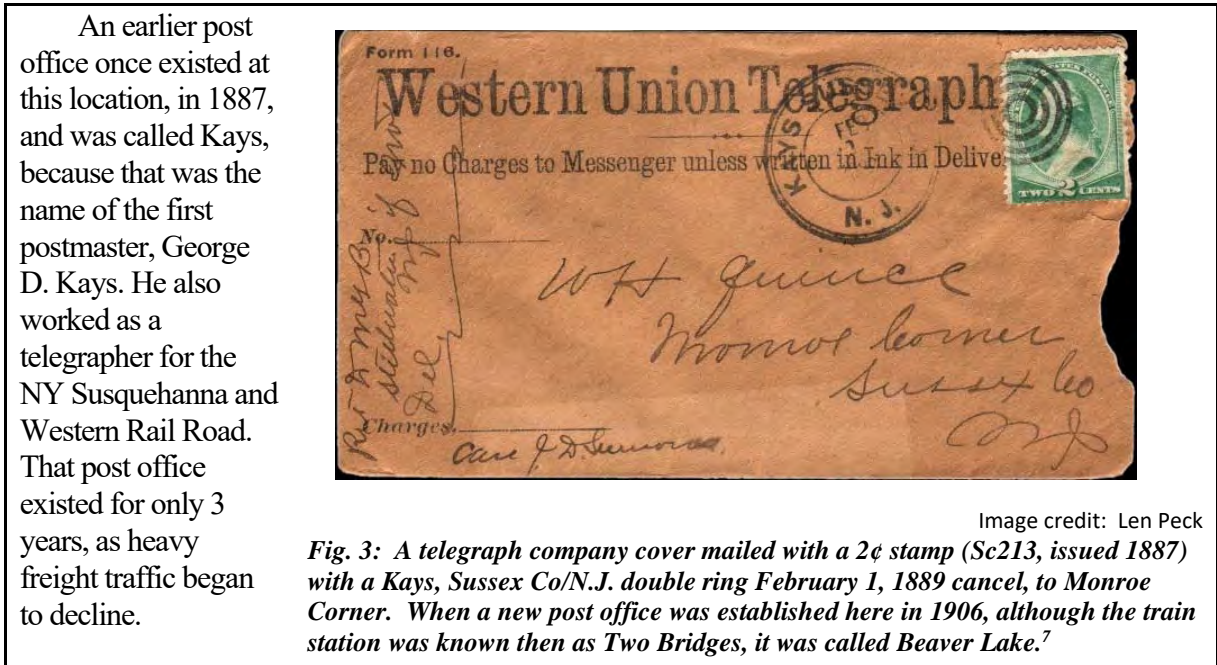 An earlier post
office once existed at
this location, in 1887,
and was called Kays,
because that was the
name of the first
postmaster, George
D. Kays. He also
worked as a
telegrapher for the
NY Susquehanna and
Western Rail Road.
That post office
existed for only 3
years, as heavy
freight traffic began
to decline.
Form 116.
Western Union Telegraph
Pay no Charges to Messenger unless written in Ink in Delive
KAYS
FE
N. J.
TWO 2 CENTS
No.
W H
Monroe Corner
Sussex Co
NJ
Charges.
Care J. D.
Image credit: Len Peck
Fig. 3: A telegraph company cover mailed with a 2¢ stamp (Sc213, issued 1887)
with a Kays, Sussex Co/N.J. double ring February 1, 1889 cancel, to Monroe
Corner. When a new post office was established here in 1906, although the train
station was known then as Two Bridges, it was called Beaver Lake.7